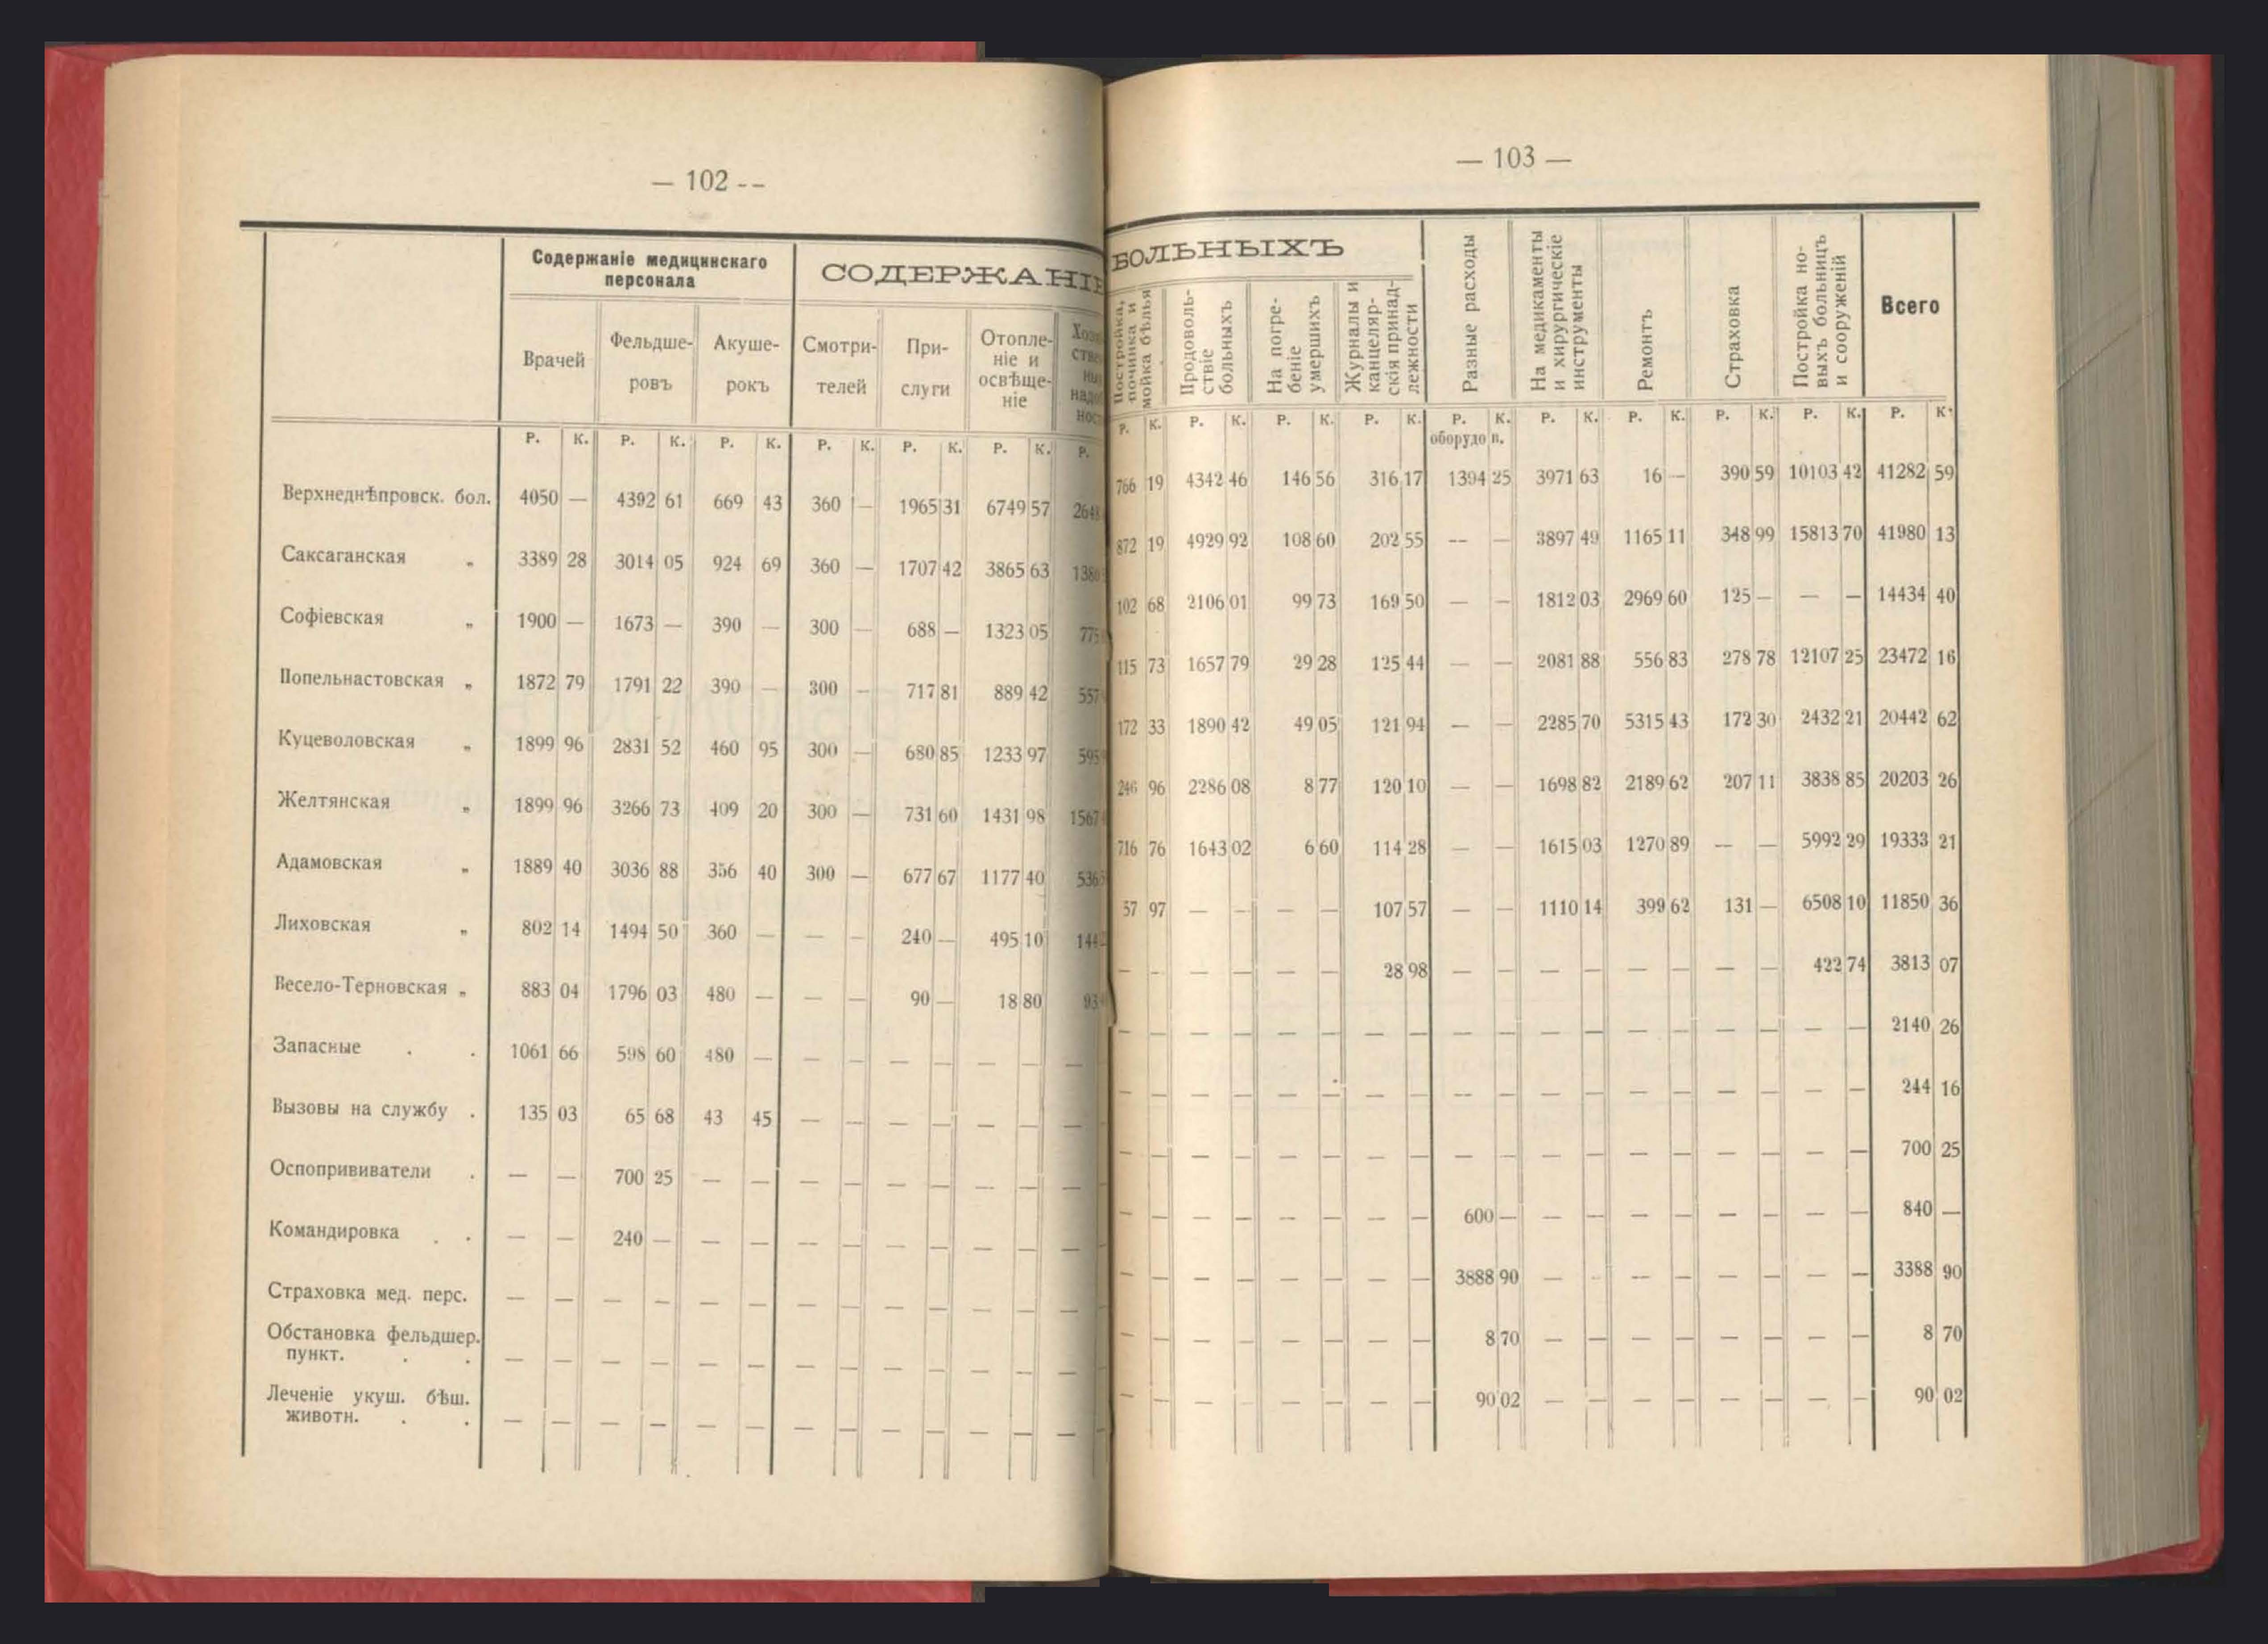 — 102 --
Содержаніе медицинскаго
персонала
СОДЕРЖАНІЕ
Врачей
Фельдше-
ровъ
Акуше-
рокъ
Смотри-
телей
При-
слуги
Отопле-
ніе и
освѣще-
ніе
Р. К. Р. К. Р. К. Р. К. Р. К. Р. К. Р.
Верхнеднѣпровск. бол. 4050 — 4392 61 669 43 360 — 1965 31 6749 57
Саксаганская „ 3389 28 3014 05 924 69 360 — 1707 42 3865 63
Софіевская „ 1900 — 1673 — 390 — 300 — 688 — 1323 05 775
Попельнастовская „ 1872 79 1791 22 390 — 300 — 717 81 889 42 557
Куцеволовская „ 1899 96 2831 52 460 95 300 — 680 85 1233 97 595
Желтянская „ 1899 96 3266 73 409 20 300 — 731 60 1431 98 1567
Адамовская „ 1889 40 3036 88 356 40 300 — 677 67 1177 40 536
Лиховская „ 802 14 1494 50 360 — — — 240 — 495 10 144
Весело-Терновская „ 883 04 1796 03 480 — — — 90 — 18 80 93
Запасные . . 1061 66 598 60 480 — — — — — — — —
Вызовы на службу . 135 03 65 68 43 45 — — — — — — —
Оспопрививатели . — — 700 25 — — — — — — — — —
Командировка . . — — 240 — — — — — — — — — —
Страховка мед. перс. — — — — — — — — — — — — —
Обстановка фельдшер.
пункт. . . — — — — — — — — — — — — —
Леченіе укуш. бѣш.
животн. . . — — — — — — — — — — — — —
— 103 —
БОЛЬНЫХЪ
Постройка,
починка и
мойка бѣлья
Продоволь-
ствіе
больныхъ
На погре-
беніе
умершихъ
Журналы и
канцеляр-
скія принад-
лежности
Разные расходы
На медикаменты
и хирургическіе
инструменты
Ремонтъ
Страховка
Постройка но-
выхъ больницъ
и сооруженій
Всего
Р. К. Р. К. Р. К. Р. К. Р. К. Р. К. Р. К. Р. К. Р. К. Р. К.
оборудо в.
766 19 4342 46 146 56 316 17 1394 25 3971 63 16 — 390 59 10103 42 41282 59
872 19 4929 92 108 60 202 55 -- — 3897 49 1165 11 348 99 15813 70 41980 13
102 68 2106 01 99 73 169 50 — — 1812 03 2969 60 125 — — — 14434 40
115 73 1657 79 29 28 125 44 — — 2081 88 556 83 278 78 12107 25 23472 16
172 33 1890 42 49 05 121 94 — — 2285 70 5315 43 172 30 2432 21 20442 62
246 96 2286 08 8 77 120 10 — — 1698 82 2189 62 207 11 3838 85 20203 26
716 76 1643 02 6 60 114 28 — — 1615 03 1270 89 — — 5992 29 19333 21
57 97 — — — — 107 57 — — 1110 14 399 62 131 — 6508 10 11850 36
— — — — — — 28 98 — — — — — — — — 422 74 3813 07
— — — — — — — — — — — — — — — — — — 2140 26
— — — — — — — — — — — — — — — — — — 244 16
— — — — — — — — — — — — — — — — — — 700 25
— — — — — — — — 600 — — — — — — — — — 840 —
— — — — — — — — 3888 90 — — — — — — — — 3388 90
— — — — — — — — 8 70 — — — — — — — — 8 70
— — — — — — — — 90 02 — — — — — — — — 90 02